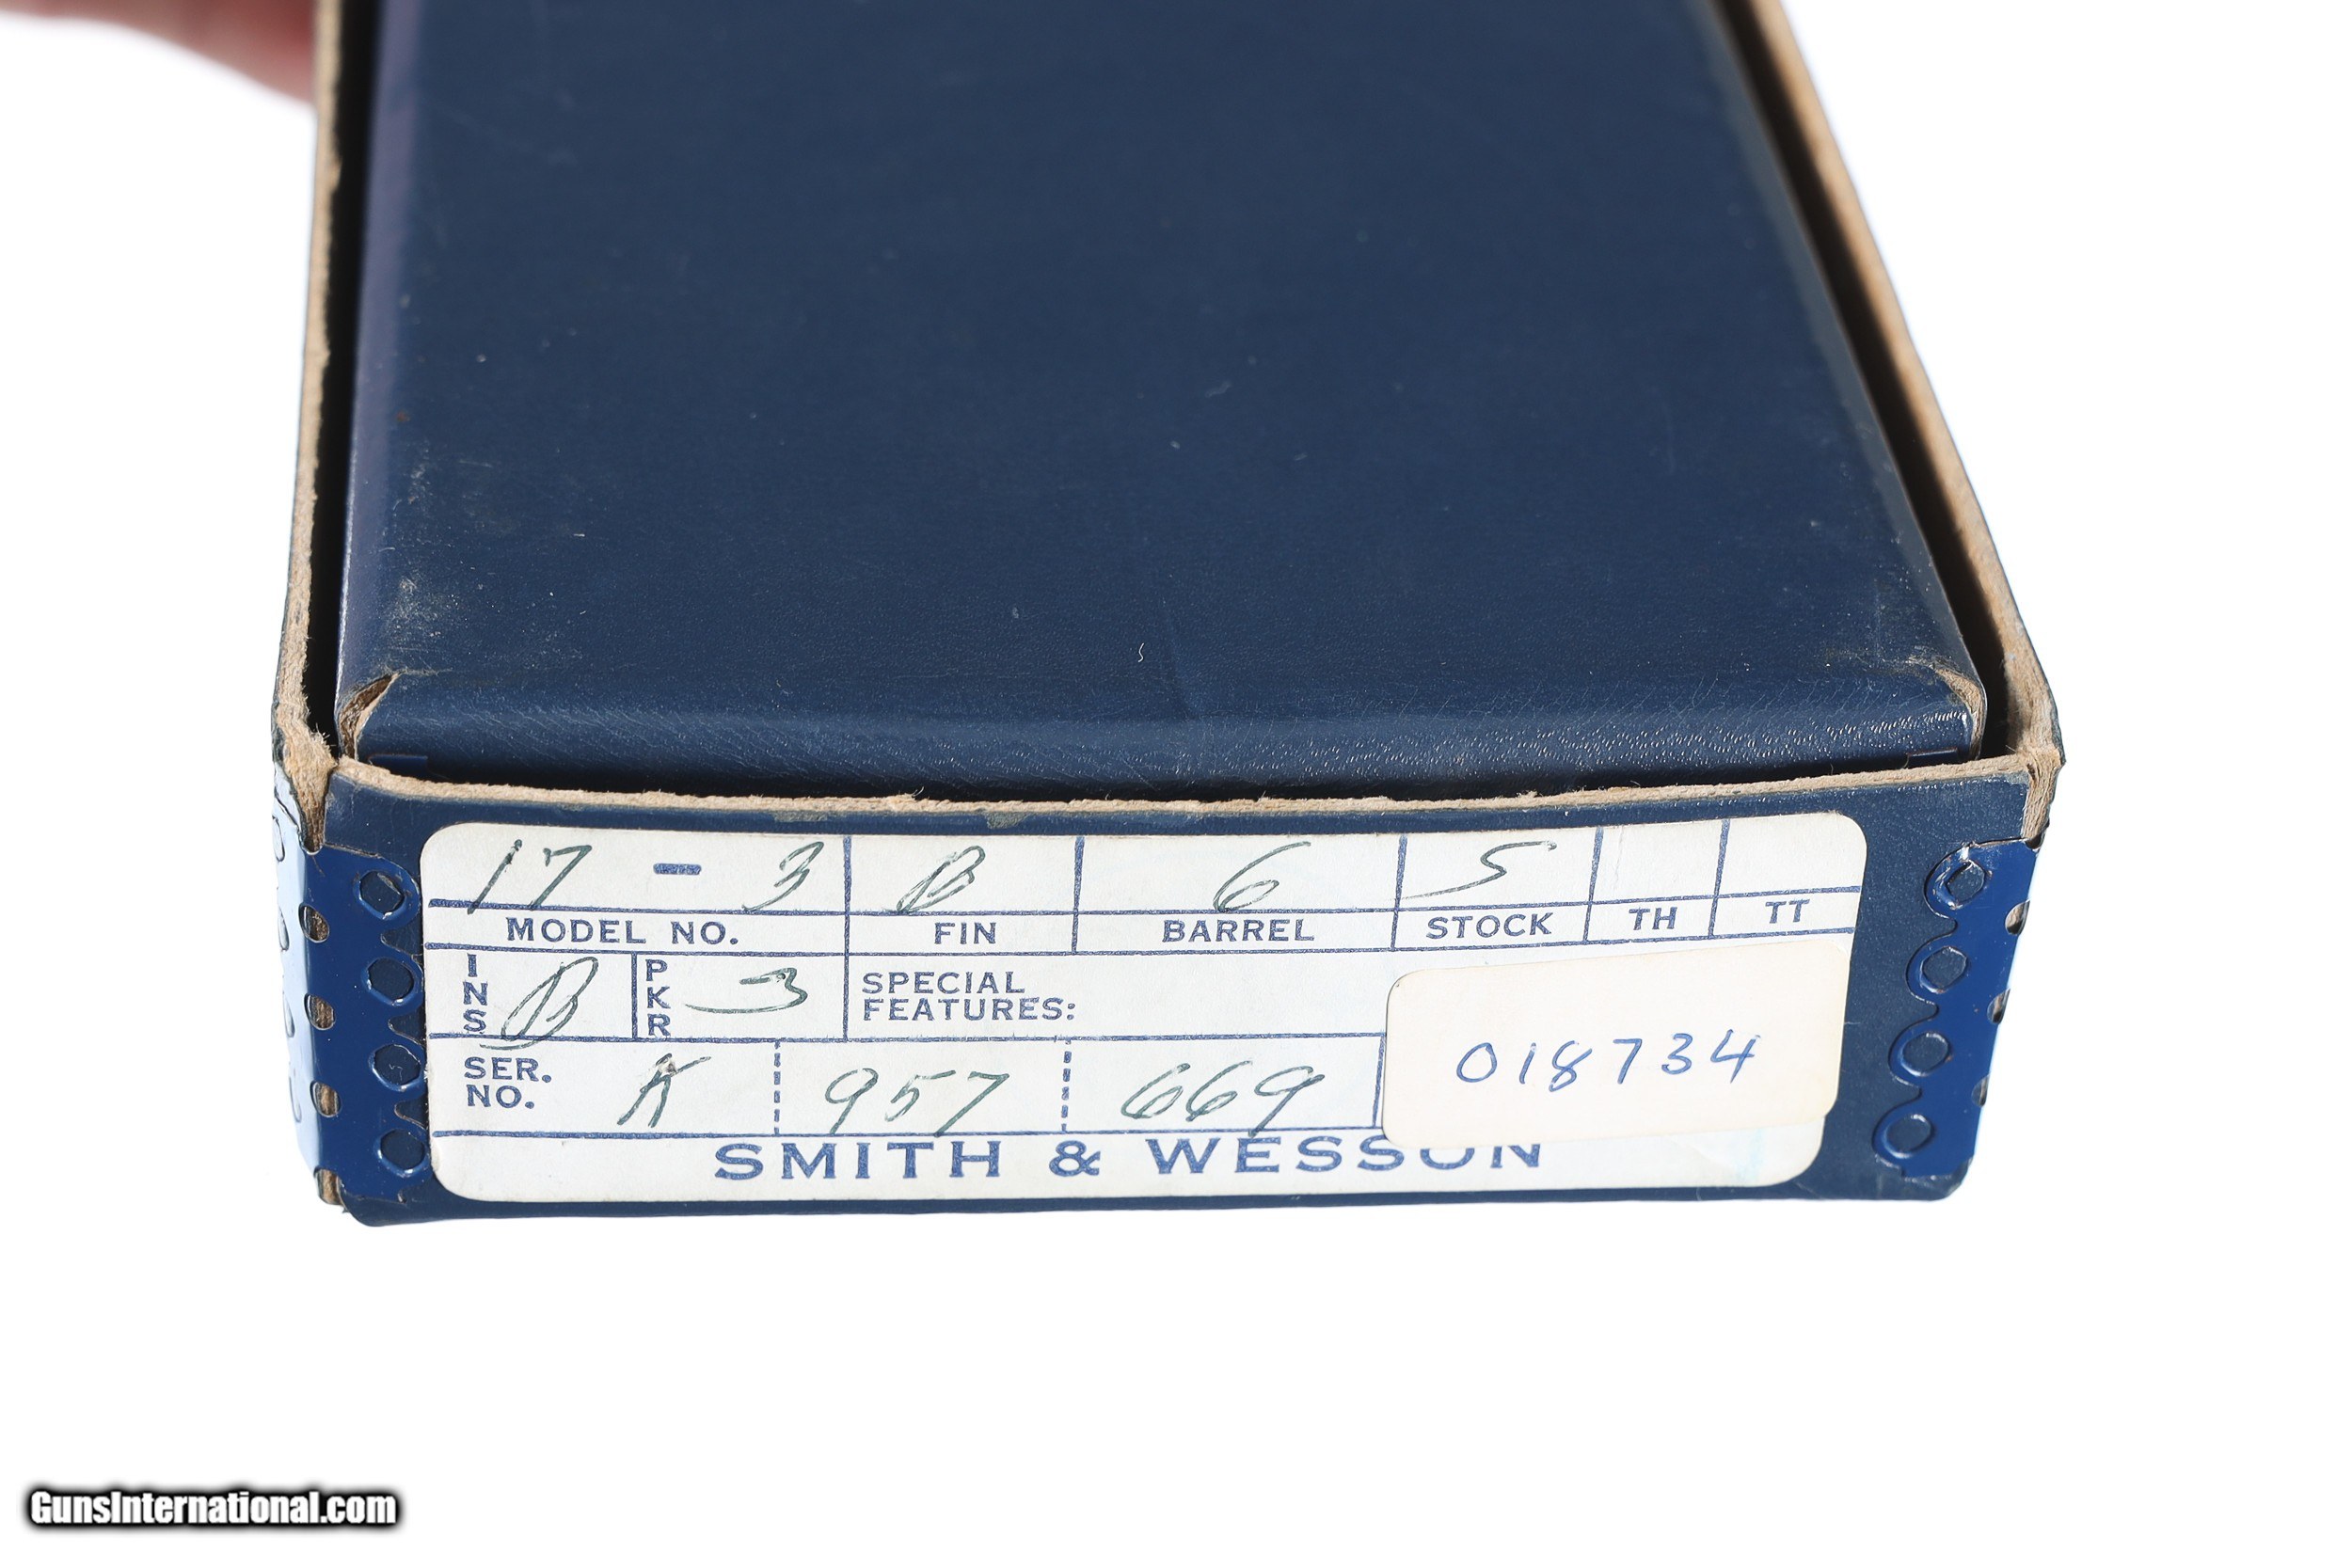 17 - 3 B 6 S
MODEL NO. FIN BARREL STOCK TH TT
INS B PKR 3 SPECIAL FEATURES:
SER. NO. K 957 669
018734
SMITH & WESSON
GunsInternational.com